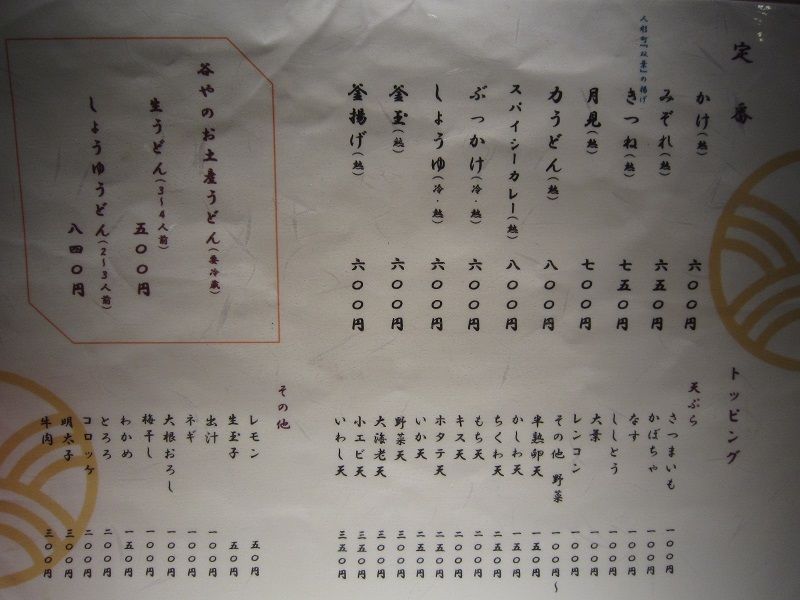 定番
かけ(熱) 六〇〇円
みぞれ(熱) 六五〇円
人形町『双葉』の揚げ
きつね(熱) 七五〇円
月見(熱) 七〇〇円
力うどん(熱) 八〇〇円
スパイシーカレー(熱) 八〇〇円
ぶっかけ(冷・熱) 六〇〇円
しょうゆ(冷・熱) 六〇〇円
釜玉(熱) 六〇〇円
釜揚げ(熱) 六〇〇円
谷やのお土産うどん(要冷蔵)
生うどん(3〜4人前)
五〇〇円
しょうゆうどん(2〜3人前)
八四〇円
トッピング
天ぷら
さつまいも 一〇〇円
かぼちゃ 一〇〇円
なす 一〇〇円
ししとう 一〇〇円
大葉 一〇〇円
レンコン 一〇〇円
その他 野菜 一〇〇円〜
半熟卵天 一五〇円
かしわ天 一五〇円
ちくわ天 二〇〇円
もち天 二〇〇円
キス天 二〇〇円
ホタテ天 二五〇円
いか天 二五〇円
野菜天 三〇〇円
大海老天 三五〇円
小エビ天 三五〇円
いわし天 三五〇円
その他
レモン 五〇円
生玉子 五〇円
出汁 一〇〇円
ネギ 一〇〇円
大根おろし 一〇〇円
梅干し 一〇〇円
わかめ 一五〇円
とろろ 二〇〇円
コロッケ 二〇〇円
明太子 三〇〇円
牛肉 三〇〇円